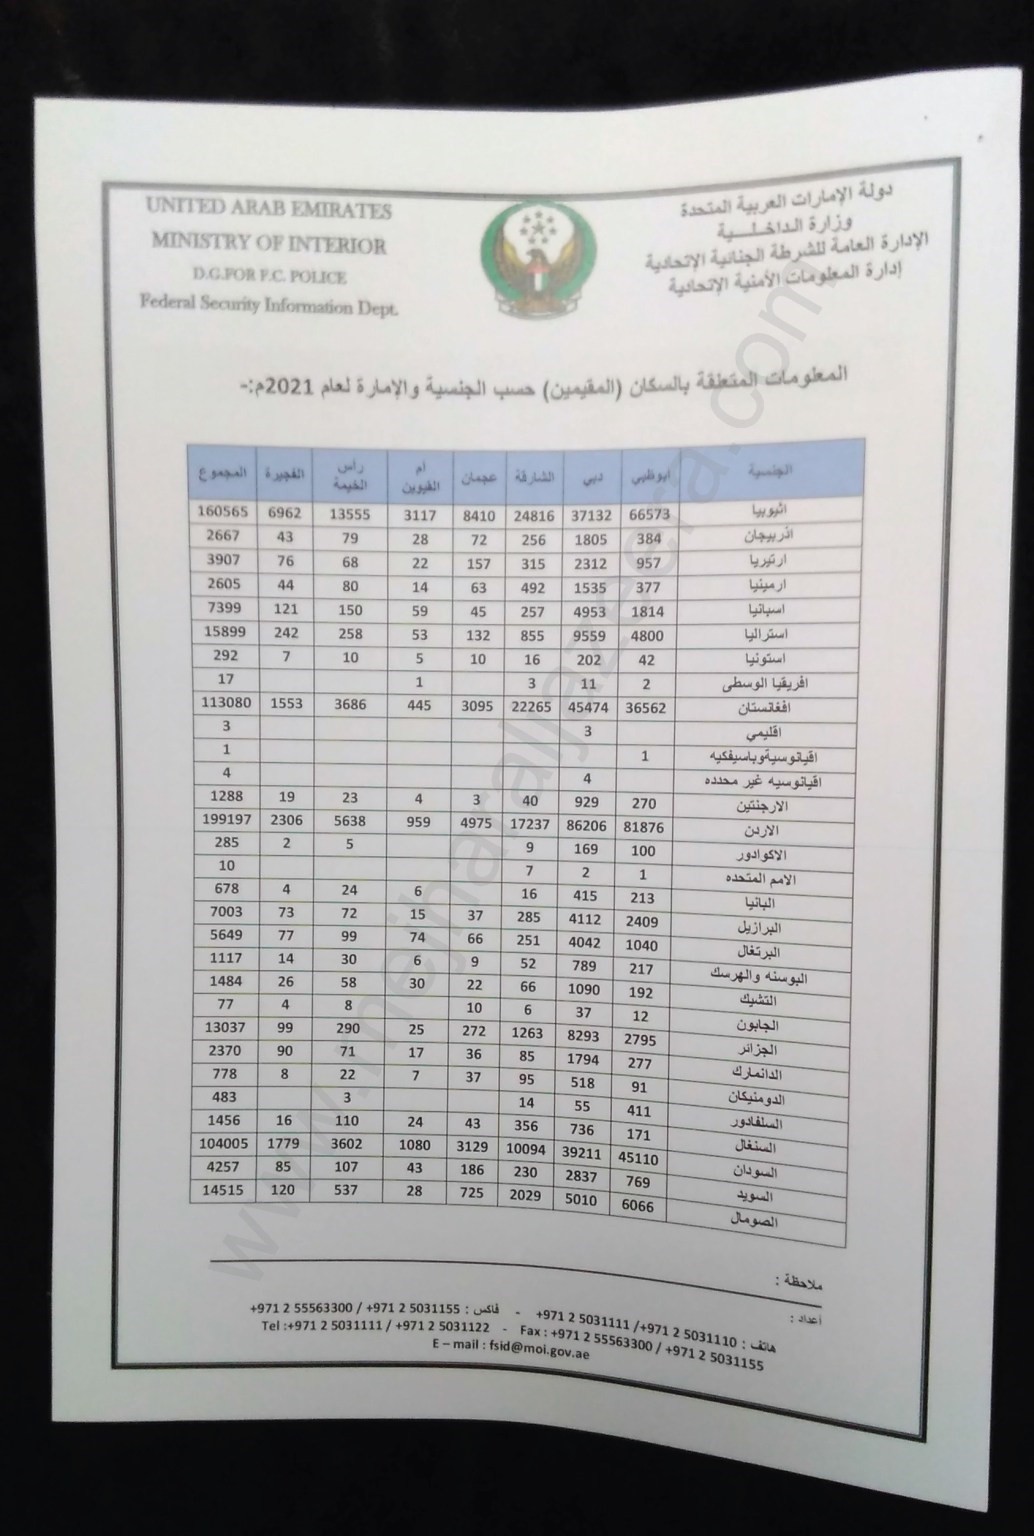 UNITED ARAB EMIRATES
MINISTRY OF INTERIOR
D.G.FOR F.C. POLICE
Federal Security Information Dept.
دولة الإمارات العربية المتحدة
وزارة الداخلـــية
الإدارة العامة للشرطة الجنائية الإتحادية
إدارة المعلومات الأمنية الإتحادية
المعلومات المتعلقة بالسكان (المقيمين) حسب الجنسية والإمارة لعام 2021م:-
الجنسية ابوظبي دبي الشارقة عجمان أم القيوين راس الخيمة الفجيرة المجموع
اثيوبيا 66573 37132 24816 8410 3117 13555 6962 160565
اذربيجان 384 1805 256 72 28 79 43 2667
ارتيريا 957 2312 315 157 22 68 76 3907
ارمينيا 377 1535 492 63 14 80 44 2605
اسبانيا 1814 4953 257 45 59 150 121 7399
استراليا 4800 9559 855 132 53 258 242 15899
استونيا 42 202 16 10 5 10 7 292
افريقيا الوسطى 2 11 3 1 17
افغانستان 36562 45474 22265 3095 445 3686 1553 113080
اقليمي 3 3
اقيانوسيةوباسيفكيه 1 1
اقيانوسيه غير محدده 4 4
الارجنتين 270 929 40 3 4 23 19 1288
الاردن 81876 86206 17237 4975 959 5638 2306 199197
الاكوادور 100 169 9 5 2 285
الامم المتحده 1 2 7 10
البانيا 213 415 16 6 24 4 678
البرازيل 2409 4112 285 37 15 72 73 7003
البرتغال 1040 4042 251 66 74 99 77 5649
البوسنه والهرسك 217 789 52 9 6 30 14 1117
التشيك 192 1090 66 22 30 58 26 1484
الجابون 12 37 6 10 8 4 77
الجزائر 2795 8293 1263 272 25 290 99 13037
الدانمارك 277 1794 85 36 17 71 90 2370
الدومنيكان 91 518 95 37 7 22 8 778
السلفادور 411 55 14 3 483
السنغال 171 736 356 43 24 110 16 1456
السودان 45110 39211 10094 3129 1080 3602 1779 104005
السويد 769 2837 230 186 43 107 85 4257
الصومال 6066 5010 2029 725 28 537 120 14515
ملاحظة :
اعداد :
هاتف : 5031110 2 971+ /5031111 2 971+ - فاكس : 5031155 2 971+ / 55563300 2 971+
Tel :+971 2 5031111 / +971 2 5031122 - Fax : +971 2 55563300 / +971 2 5031155
E – mail : fsid@moi.gov.ae
www.mejharaljazeera.com